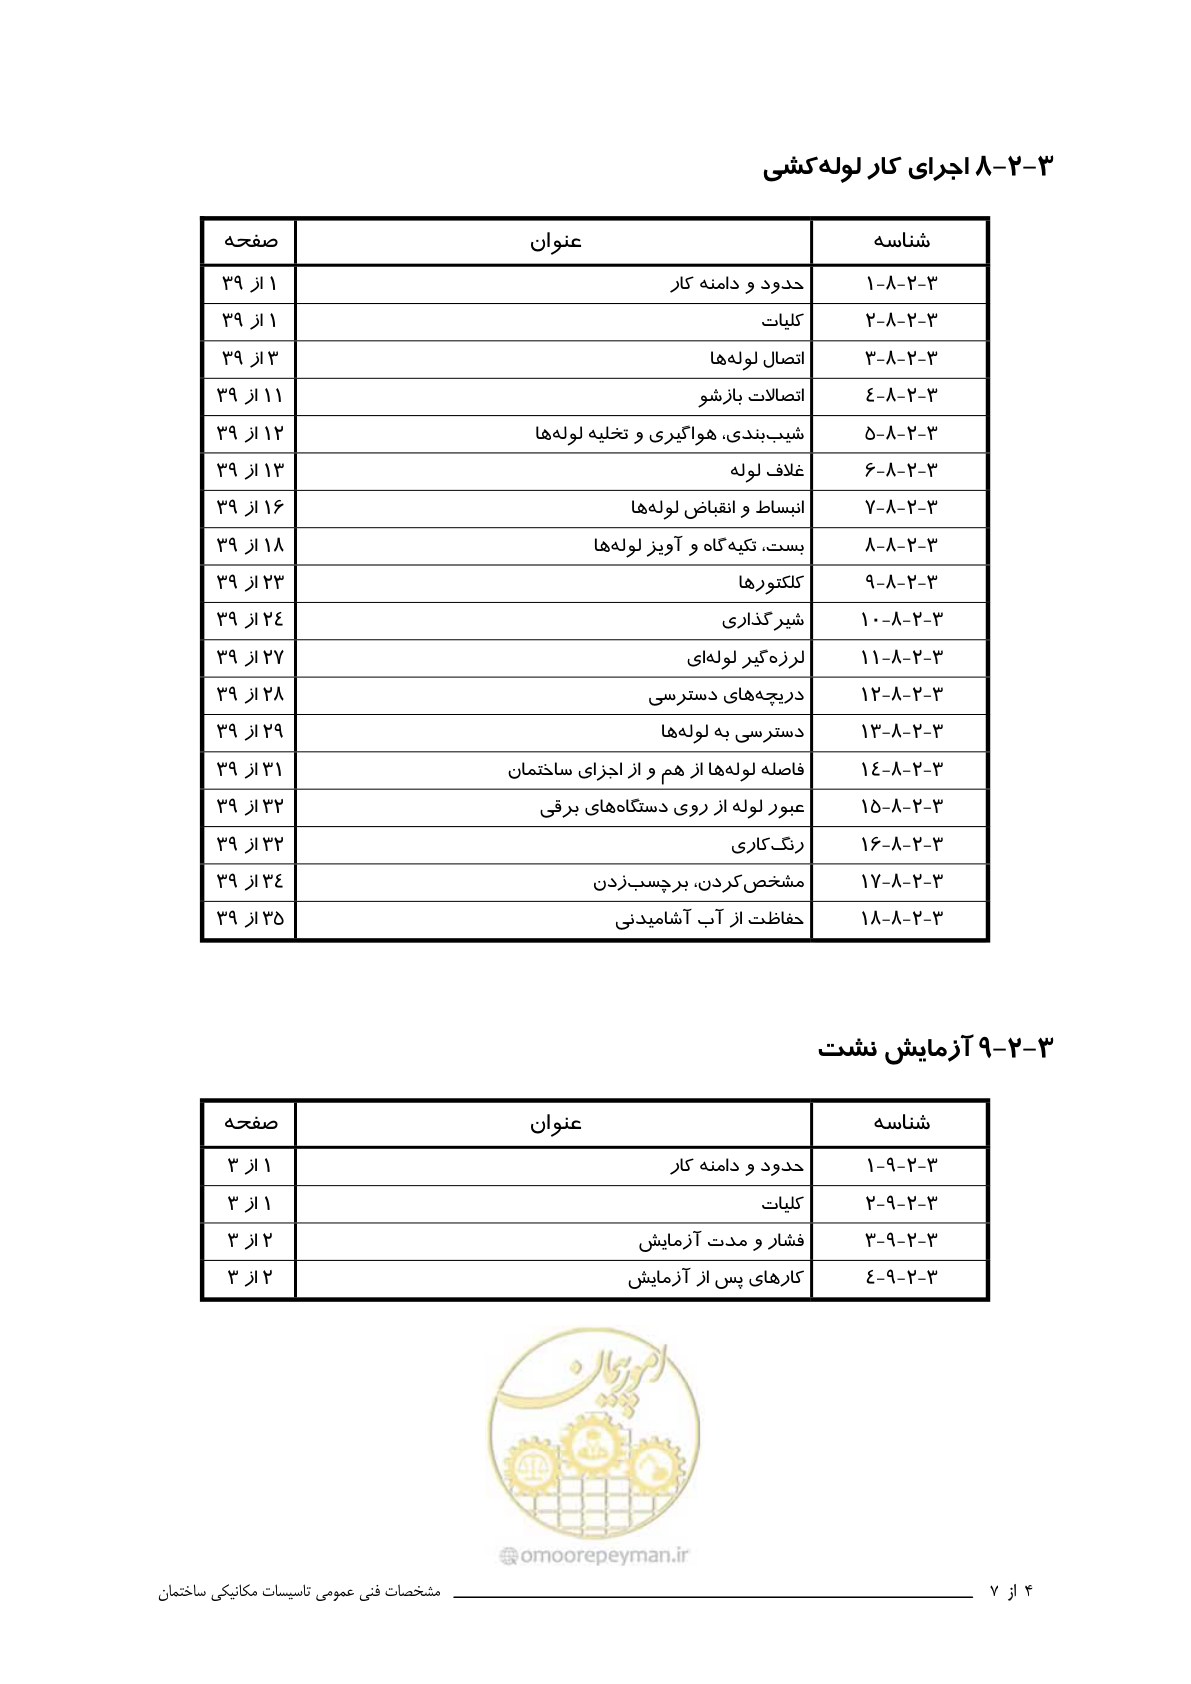 ۳-۲-۸ اجرای کار لوله‌کشی
شناسه عنوان صفحه
۳-۲-۸-۱ حدود و دامنه کار ۱ از ۳۹
۳-۲-۸-۲ کلیات ۱ از ۳۹
۳-۲-۸-۳ اتصال لوله‌ها ۳ از ۳۹
۳-۲-۸-٤ اتصالات بازشو ۱۱ از ۳۹
۳-۲-۸-۵ شیب‌بندی، هواگیری و تخلیه لوله‌ها ۱۲ از ۳۹
۳-۲-۸-۶ غلاف لوله ۱۳ از ۳۹
۳-۲-۸-۷ انبساط و انقباض لوله‌ها ۱۶ از ۳۹
۳-۲-۸-۸ بست، تکیه‌گاه و آویز لوله‌ها ۱۸ از ۳۹
۳-۲-۸-۹ کلکتورها ۲۳ از ۳۹
۳-۲-۸-۱۰ شیرگذاری ۲٤ از ۳۹
۳-۲-۸-۱۱ لرزه‌گیر لوله‌ای ۲۷ از ۳۹
۳-۲-۸-۱۲ دریچه‌های دسترسی ۲۸ از ۳۹
۳-۲-۸-۱۳ دسترسی به لوله‌ها ۲۹ از ۳۹
۳-۲-۸-۱٤ فاصله لوله‌ها از هم و از اجزای ساختمان ۳۱ از ۳۹
۳-۲-۸-۱۵ عبور لوله از روی دستگاه‌های برقی ۳۲ از ۳۹
۳-۲-۸-۱۶ رنگ‌کاری ۳۲ از ۳۹
۳-۲-۸-۱۷ مشخص‌کردن، برچسب‌زدن ۳٤ از ۳۹
۳-۲-۸-۱۸ حفاظت از آب آشامیدنی ۳۵ از ۳۹
۳-۲-۹ آزمایش نشت
شناسه عنوان صفحه
۳-۲-۹-۱ حدود و دامنه کار ۱ از ۳
۳-۲-۹-۲ کلیات ۱ از ۳
۳-۲-۹-۳ فشار و مدت آزمایش ۲ از ۳
۳-۲-۹-٤ کارهای پس از آزمایش ۲ از ۳
امور پیمان
@omoorepeyman.ir
۴ از ۷ مشخصات فنی عمومی تاسیسات مکانیکی ساختمان